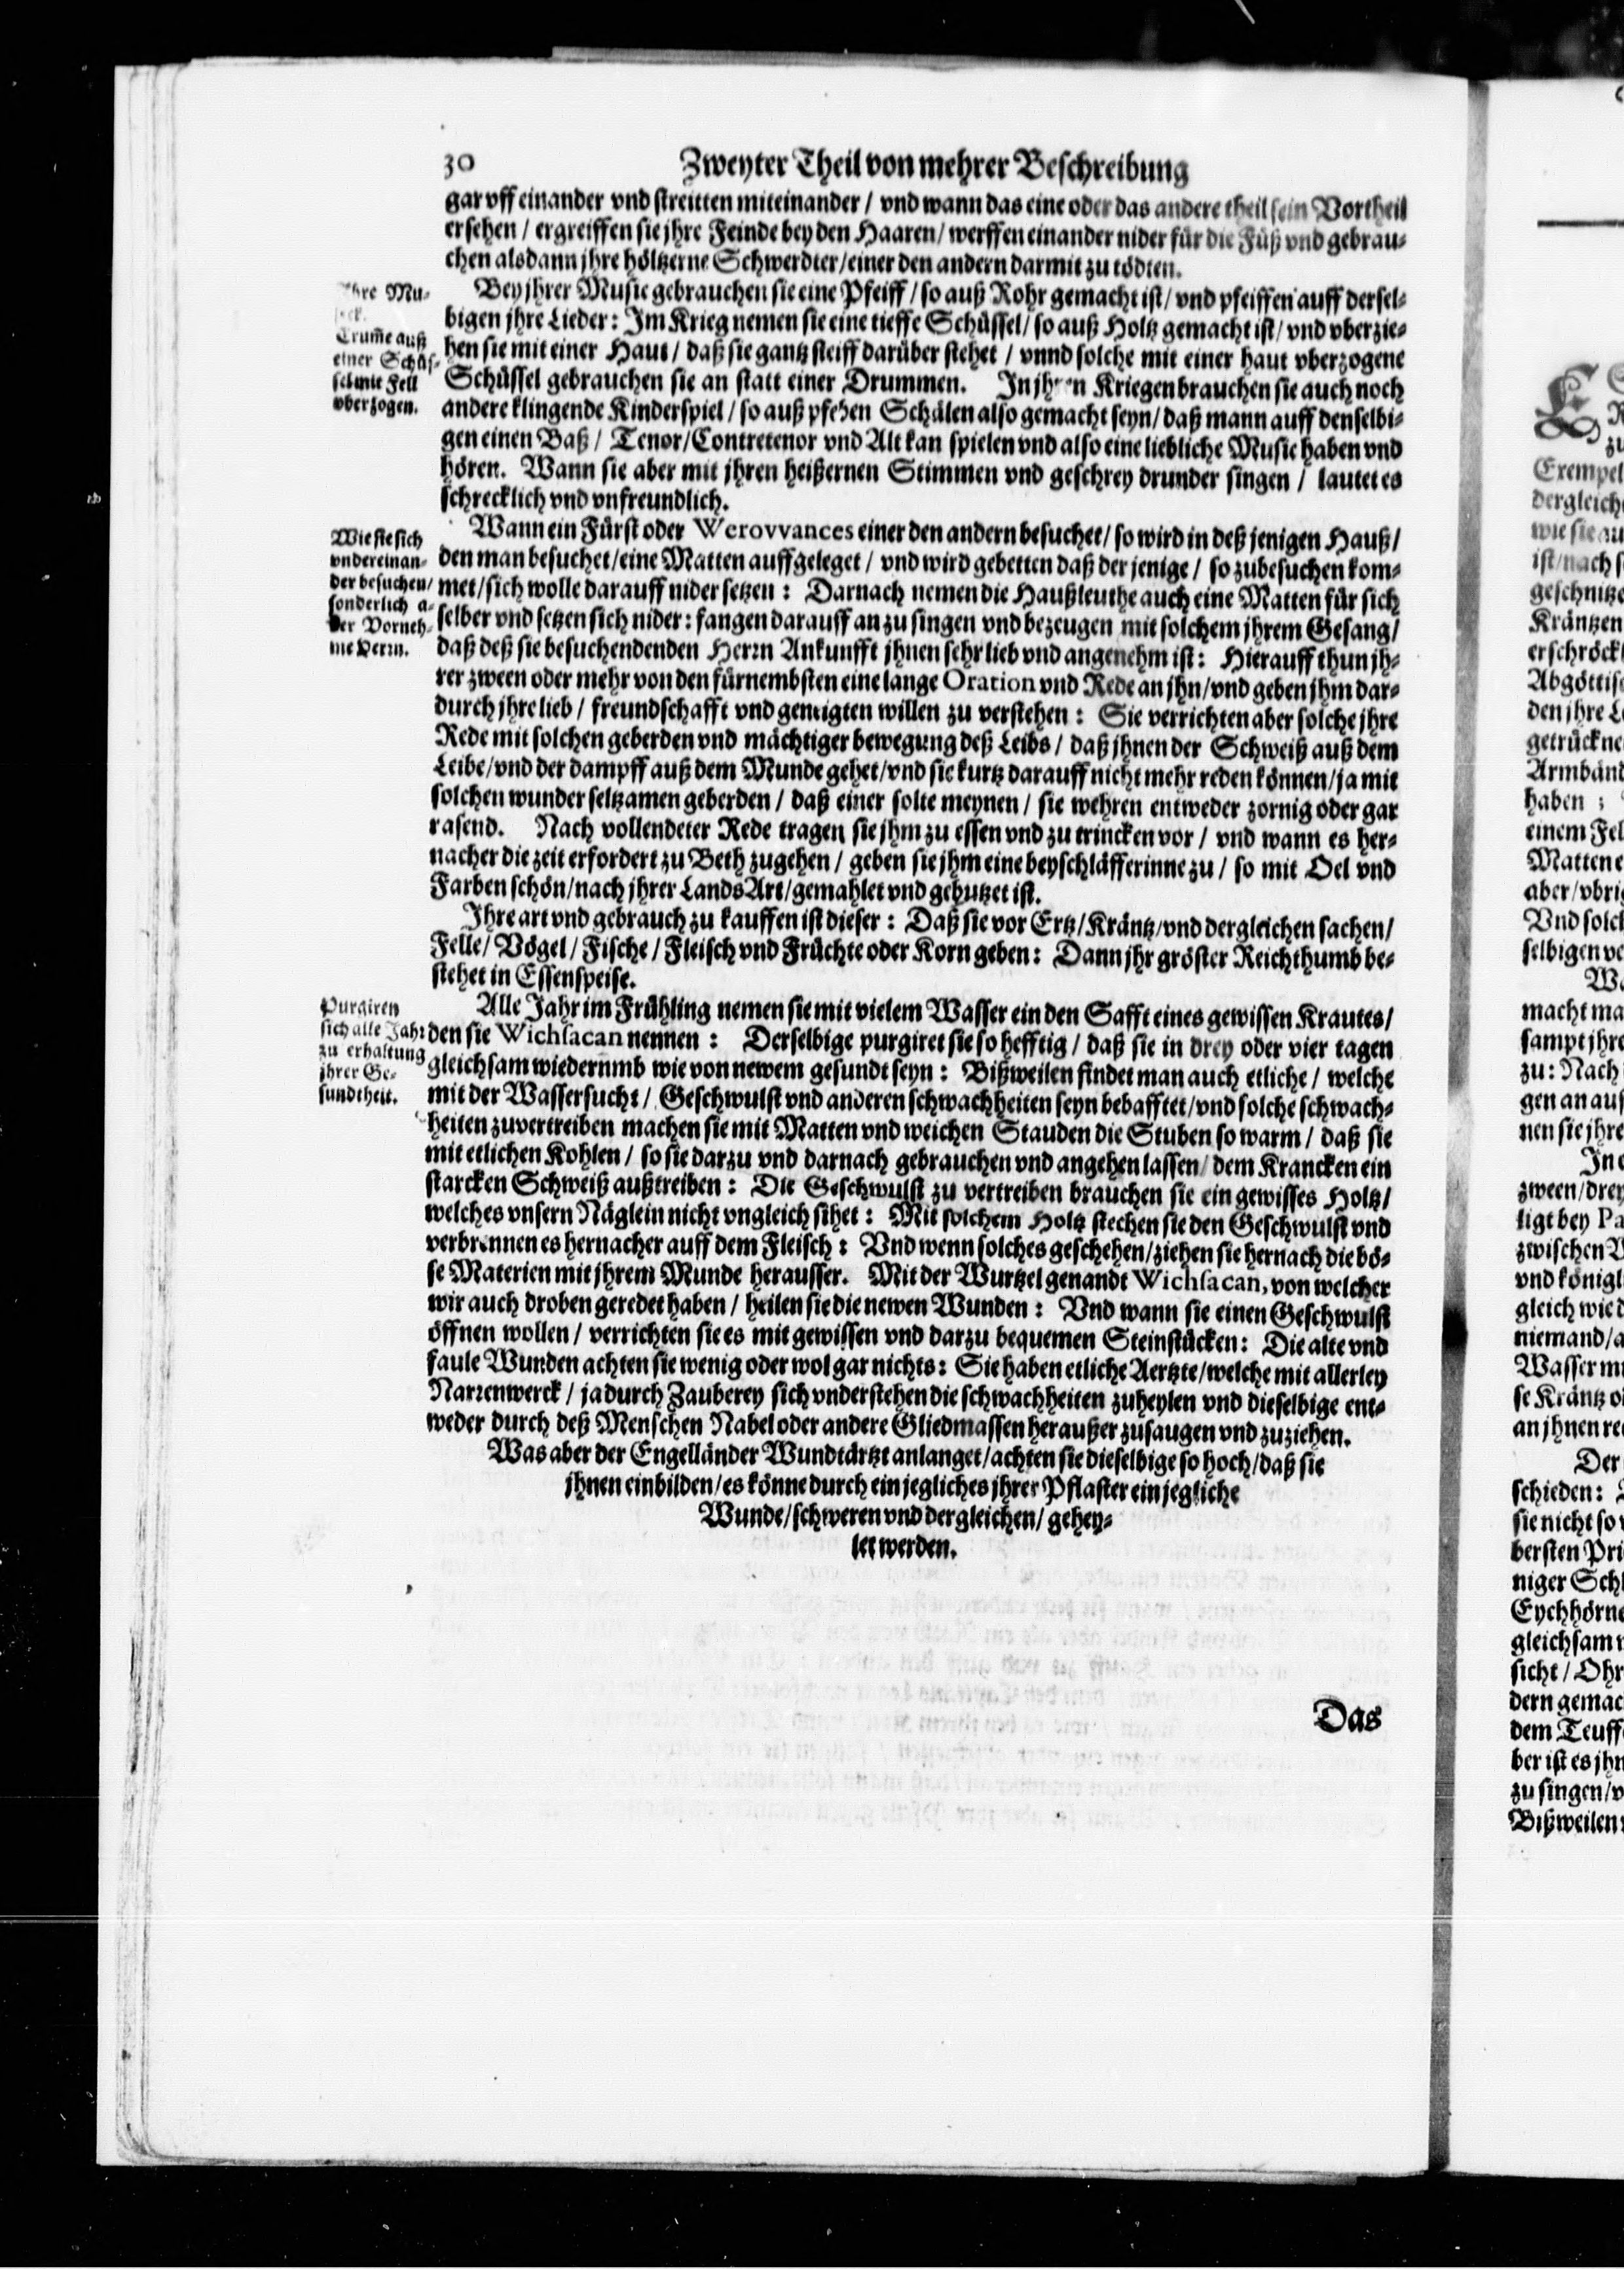 30 Zweyter Theil von mehrer Beschreibung
gar vff einander vnd streitten miteinander / vnd wann das eine oder das andere theil sein Vortheil
ersehen / ergreiffen sie jhre Feinde bey den Haaren / werffen einander nider für die Füß vnd gebrau-
chen alsdann jhre höltzerne Schwerdter / einer den andern darmit zu tödten.
Ihre Mu-
Trum̃e auß
einer Schüs-
sel mit Fell
vberzogen.
Bey jhrer Music gebrauchen sie eine Pfeiff / so auß Rohr gemacht ist / vnd pfeiffen auff dersel-
bigen jhre Lieder: Im Krieg nemen sie eine tieffe Schüssel / so auß Holtz gemacht ist / vnd vberzie-
hen sie mit einer Haut / daß sie gantz steiff darüber stehet / vnnd solche mit einer haut vberzogene
Schüssel gebrauchen sie an statt einer Drummen. In Kriegen brauchen sie auch noch
andere klingende Kinderspiel / so auß pfehen Schälen also gemacht seyn / daß mann auff denselbi-
gen einen Baß / Tenor / Contretenor vnd Alt kan spielen vnd also eine liebliche Music haben vnd
hören. Wann sie aber mit jhren heißernen Stimmen vnd geschrey drunder singen / lautet es
schrecklich vnd vnfreundlich.
Wie sie sich
vndereinan-
der besuchen /
sonderlich a-
ber Vorneh-
me Herrn.
Wann ein Fürst oder Werovvances einer den andern besuchet / so wird in deß jenigen Hauß /
den man besuchet / eine Matten auffgeleget / vnd wird gebetten daß der jenige / so zubesuchen kom-
met / sich wolle darauff nider setzen: Darnach nemen die Haußleuthe auch eine Matten für sich
selber vnd setzen sich nider: fangen darauff an zu singen vnd bezeugen mit solchem jhrem Gesang /
daß deß sie besuchendenden Herrn Ankunfft jhnen sehr lieb vnd angenehm ist: Hierauff thun jh-
rer zween oder mehr von den fürnembsten eine lange Oration vnd Rede an jhn / vnd geben jhm dar-
durch jhre lieb / freundschafft vnd geneigten willen zu verstehen: Sie verrichten aber solche jhre
Rede mit solchen geberden vnd mächtiger bewegung deß Leibs / daß jhnen der Schweiß auß dem
Leibe / vnd der dampff auß dem Munde gehet / vnd sie kurtz darauff nicht mehr reden können / ja mit
solchen wunder seltzamen geberden / daß einer solte meynen / sie wehren entweder zornig oder gar
rasend. Nach vollendeter Rede tragen sie jhm zu essen vnd zu trincken vor / vnd wann es her-
nacher die zeit erfordert zu Beth zugehen / geben sie jhm eine beyschläfferinne zu / so mit Oel vnd
Farben schön / nach jhrer Lands Art / gemahlet vnd geputzet ist.
Ihre art vnd gebrauch zu kauffen ist dieser: Daß sie vor Ertz / Kräntz / vnd dergleichen sachen /
Felle / Vögel / Fische / Fleisch vnd Früchte oder Korn geben: Dann jhr gröster Reichthumb be-
stehet in Essenspeise.
Purgiren
sich alle Jahr
zu erhaltung
jhrer Ge-
sundtheit.
Alle Jahr im Frühling nemen sie mit vielem Wasser ein den Safft eines gewissen Krautes /
den sie Wichsacan nennen: Derselbige purgiret sie so hefftig / daß sie in drey oder vier tagen
gleichsam wiedernmb wie von newem gesundt seyn: Bißweilen findet man auch etliche / welche
mit der Wassersucht / Geschwulst vnd anderen schwachheiten seyn behafftet / vnd solche schwach-
heiten zuvertreiben machen sie mit Matten vnd weichen Stauden die Stuben so warm / daß sie
mit etlichen Kohlen / so sie darzu vnd darnach gebrauchen vnd angehen lassen / dem Krancken ein
starcken Schweiß außtreiben: Die Geschwulst zu vertreiben brauchen sie ein gewisses Holtz /
welches vnsern Näglein nicht vngleich sihet: Mit solchem Holtz stechen sie den Geschwulst vnd
verbrennen es hernacher auff dem Fleisch: Vnd wenn solches geschehen / ziehen sie hernach die bö-
se Materien mit jhrem Munde herausser. Mit der Wurtzel genandt Wichsacan, von welcher
wir auch droben geredet haben / heilen sie die newen Wunden: Vnd wann sie einen Geschwulst
öffnen wollen / verrichten sie es mit gewissen vnd darzu bequemen Steinstücken: Die alte vnd
faule Wunden achten sie wenig oder wol gar nichts: Sie haben etliche Aertzte / welche mit allerley
Narrenwerck / ja durch Zauberey sich vnderstehen die schwachheiten zuheylen vnd dieselbige ent-
weder durch deß Menschen Nabel oder andere Gliedmassen heraußer zusaugen vnd zuziehen.
Was aber der Engelländer Wundtärtzt anlanget / achten sie dieselbige so hoch / daß sie
jhnen einbilden / es könne durch ein jegliches jhrer Pflaster ein jegliche
Wunde / schweren vnd dergleichen / gehey-
let werden.
Das
Exempel
dergleich
wie sie
ist / nach
geschnitze
Kräntzen
erschröck
Abgöttis
den jhre
getrückne
Armbänd
haben ;
einem Fel
Matten
aber / vbri
Vnd solch
selbigen
macht ma
sampt jhre
zu: Nach
gen an auf
nen sie jhre
In
zween / drey
ligt bey Pa
zwischen
vnd königl
gleich wie
niemand /
Wasser
se Kräntz
an jhnen
Der
schieden:
sie nicht so
bersten Pri
niger Sch
Eychhörne
gleichsam
sicht / Ohr
dern gemac
dem Teuff
ber ist es jhn
zu singen /
Bißweilen